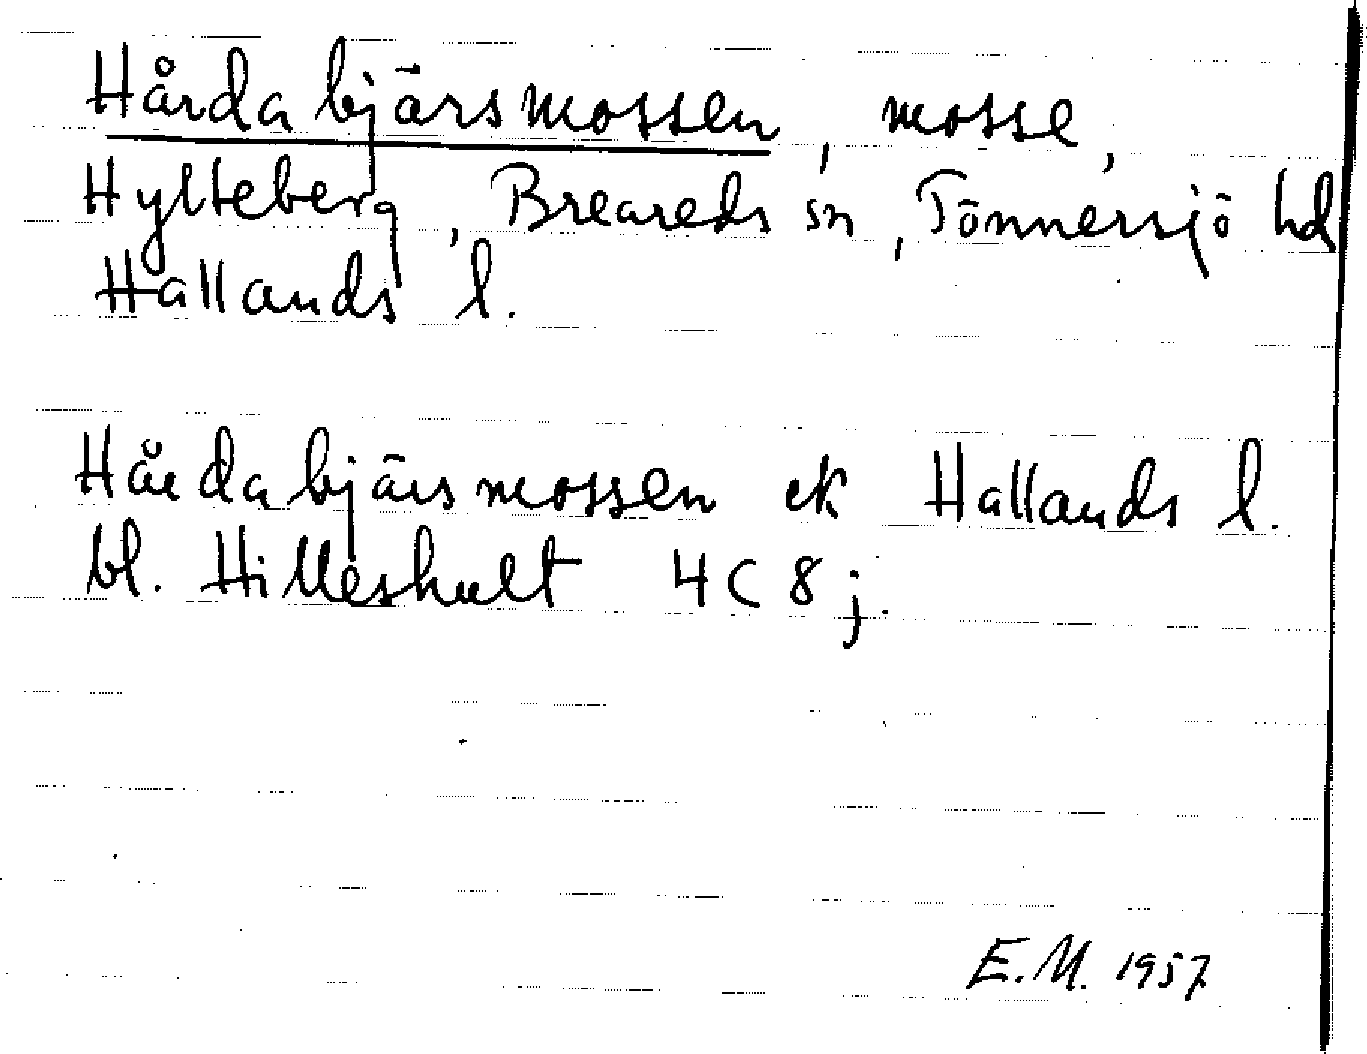 Hårdabjärsmossen, mosse,
Hylteberg, Breareds sn, Tönnersjö hd
Hallands l.
Hårdabjärsmossen ek Hallands l.
bl. Hilleshult 4C 8j.
E.M. 1957